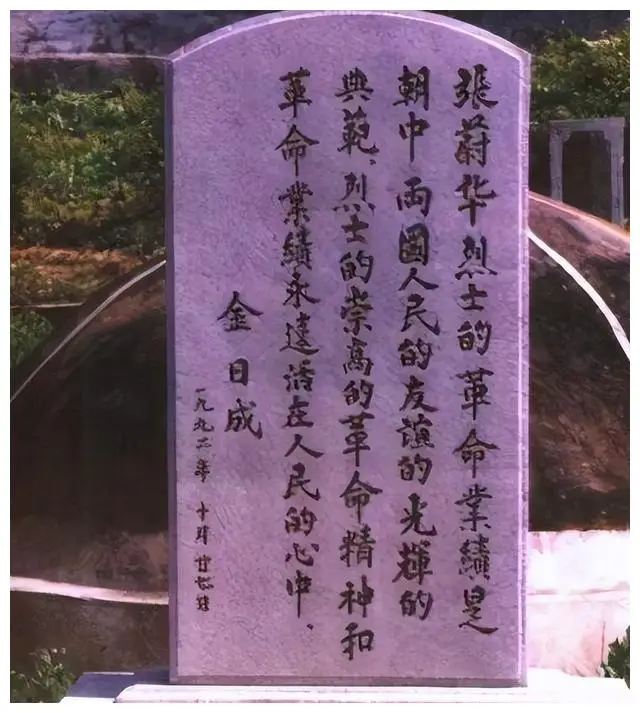 張蔚华烈士的革命業績是
朝中両國人民的友誼的光輝的
典範、烈士的崇高的革命精神和
革命業績永遠活在人民的心中、
金日成
一九九二年 十月 廿七日